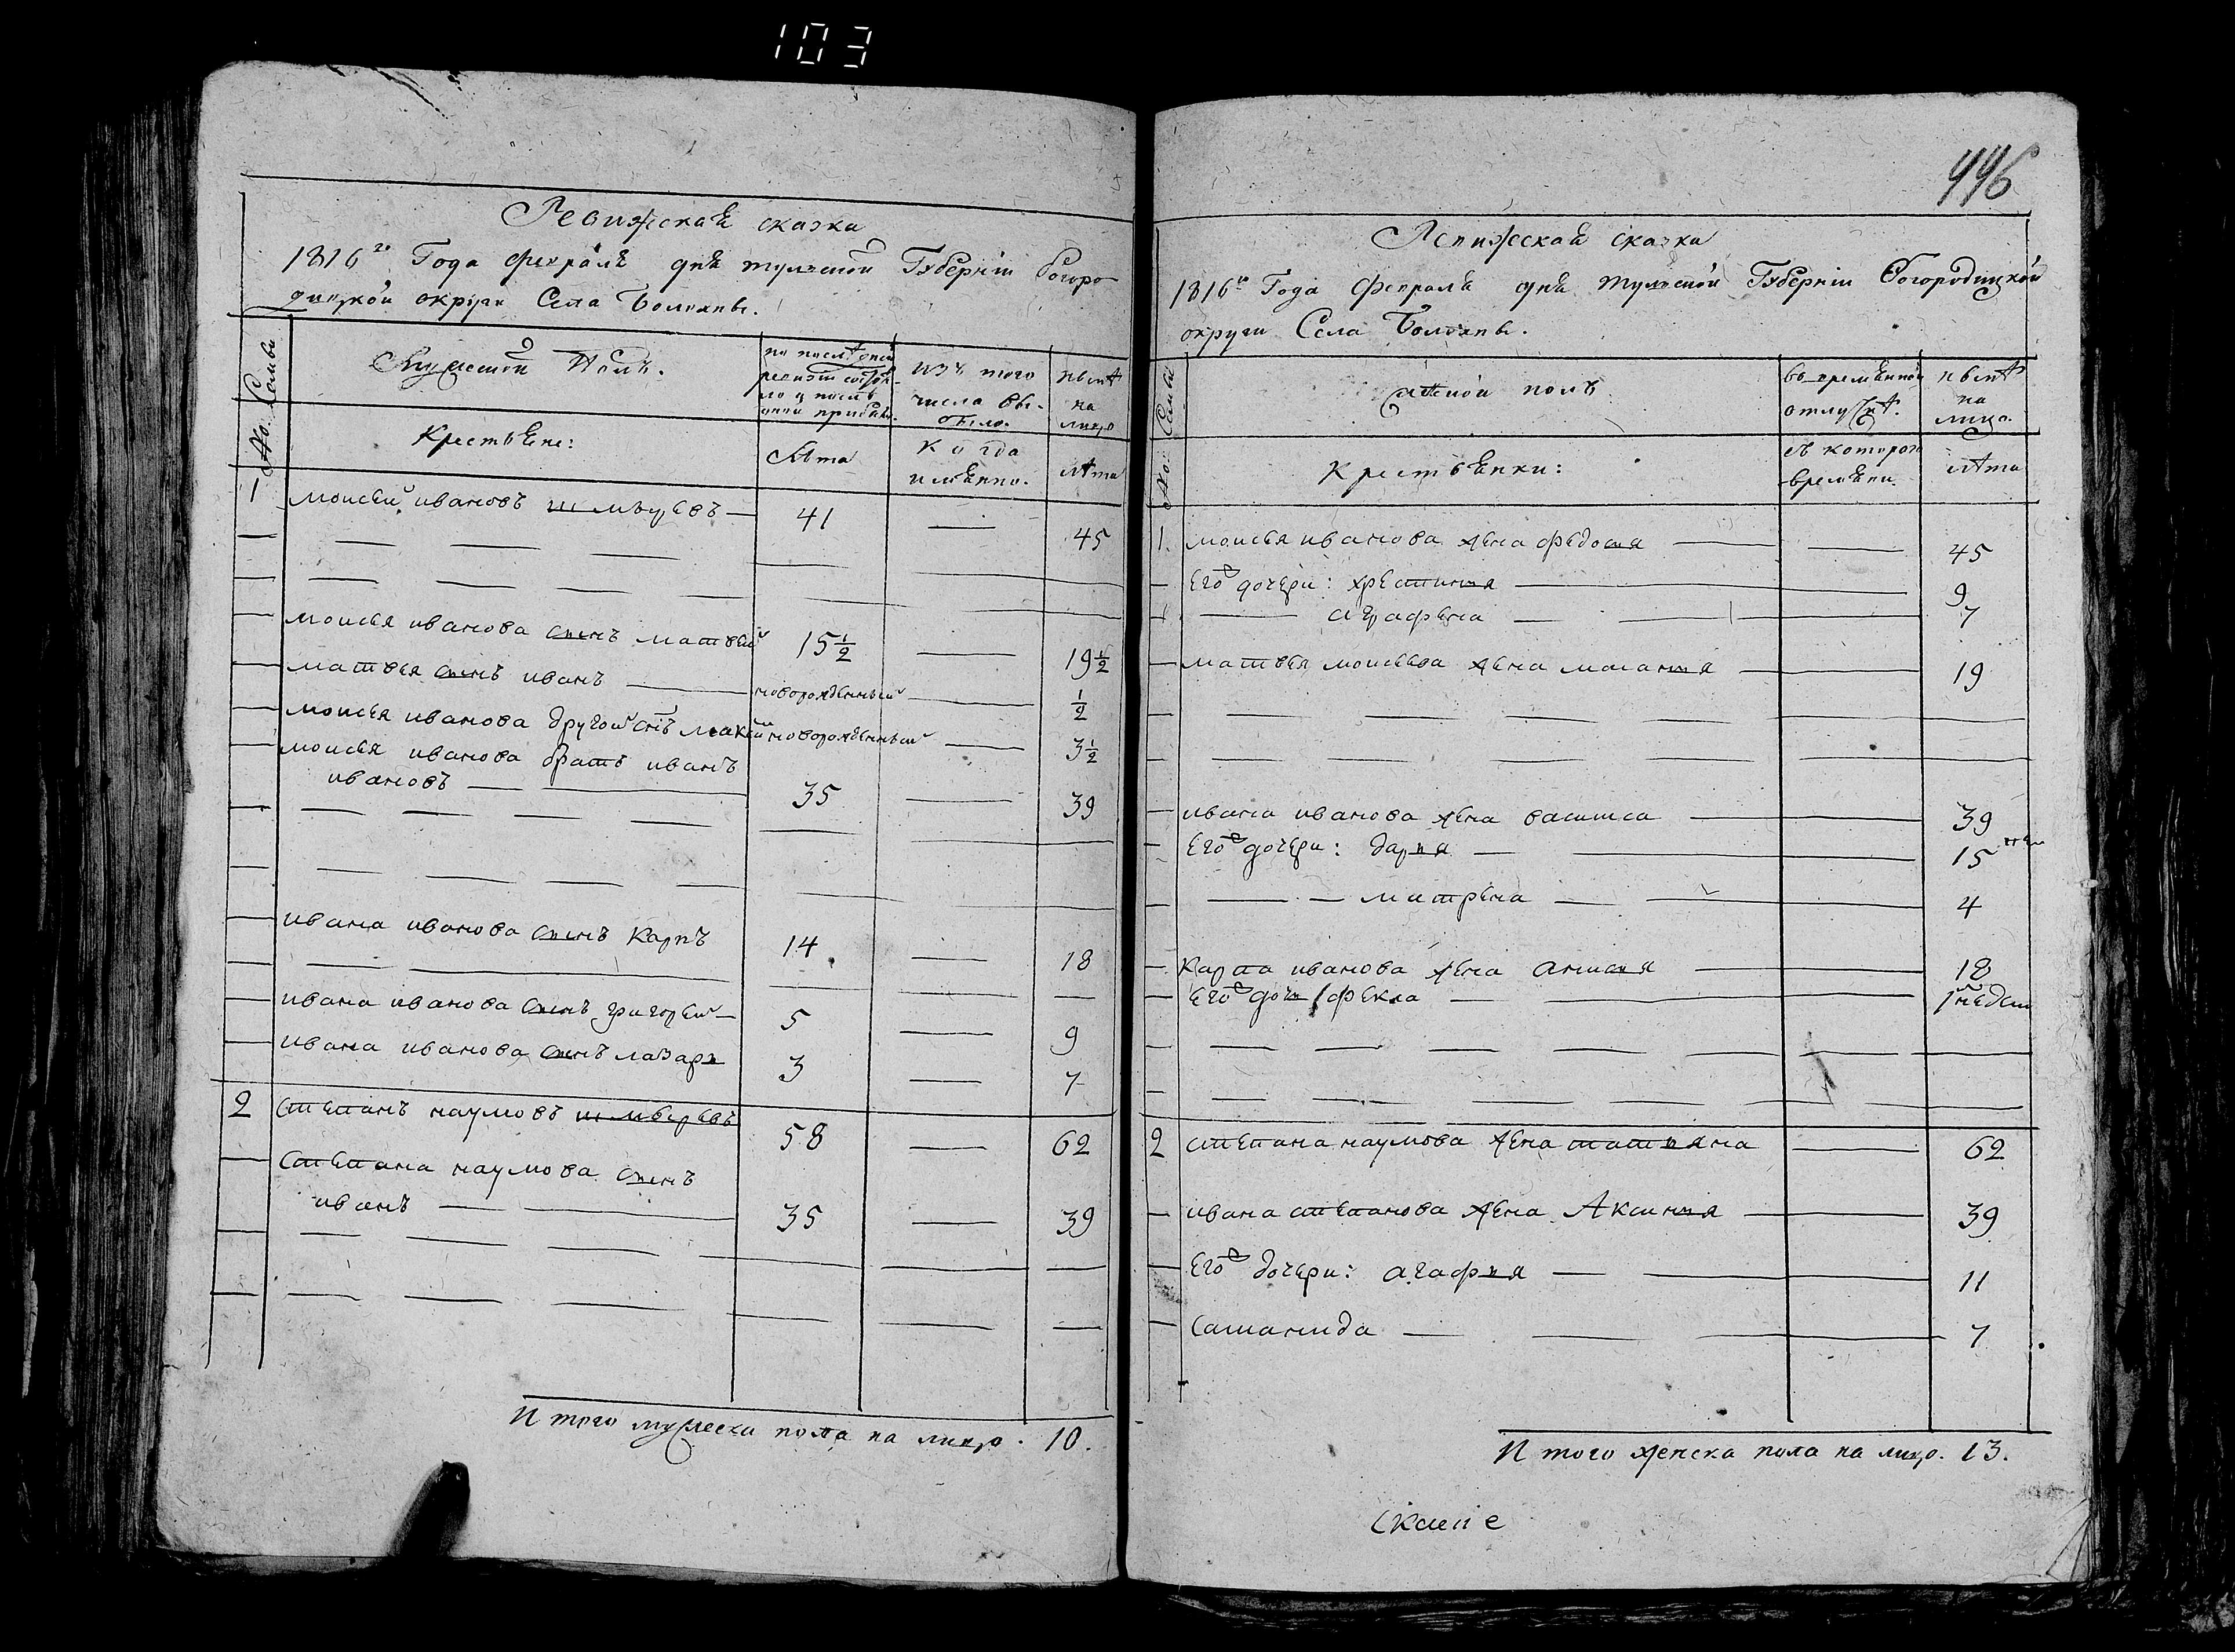 103
Ревижская сказка
1816го Года февраля дня тульской Губернiи Богоро-
дицкой округи Села
No. Семьи
Мужеской Полъ.
по последней
ревизiи состоя-
ло и после
онои прибыло.
изъ того
числа вы-
было.
ныне
на
лицо
Крестьяне:
Лета
когда
имянно.
лета
1 моисей ивановъ 41 45
моисея иванова сынъ матвей 15½ 19½
матвея сынъ иванъ новорожденный ½
моисея иванова другой снъ мокей новорожденный 3½
моисея иванова братъ иванъ
ивановъ 35 39
ивана иванова сынъ Карпъ 14 18
ивана иванова сынъ григорей 5 9
ивана иванова сынъ лазарь 3 7
2 степанъ наумовъ 58 62
степана наумова сынъ
иванъ 35 39
И того мужеска пола на лицо. 10.
446
Ревижская сказка
1816го Года февраля дня тульской Губернiи Богородицкой
округи Села
No. Семьи
женской полъ
во временной
отлучке.
ныне
на
лицо.
Крестьянки:
съ котораго
времяни
лета
1. моисея иванова жена федосья 45
Его дочери: хрестинья 9
аграфена 7
матвея моисеева жена маланья 19
ивана иванова жена василиса 39
Его дочери: дарья 15
матрена 4
Карпа иванова жена анисья 18
Его дочь фекла 1 недели
2 степана наумова жена татьяна 62
ивана степанова жена Аксинья 39
Его дочери: агафья 11
саланида 7
И того женска пола на лицо. 13.